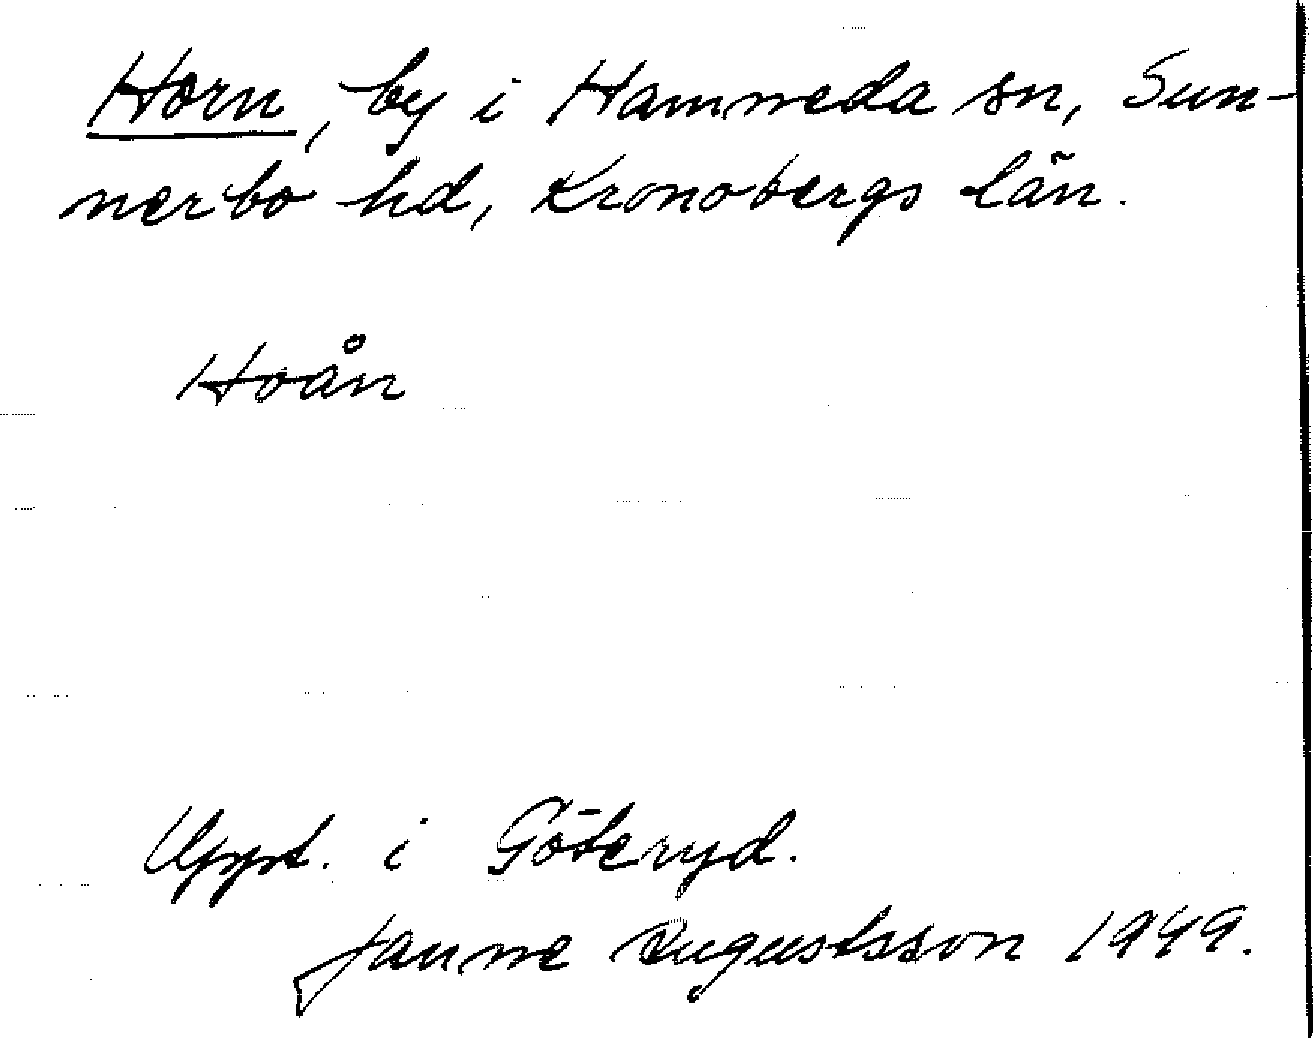 Horn, by i Hamneda sn, Sun-
nerbo hd, Kronobergs län.
Hoån
Uppt. i Göteryd.
Janne Augustsson 1949.